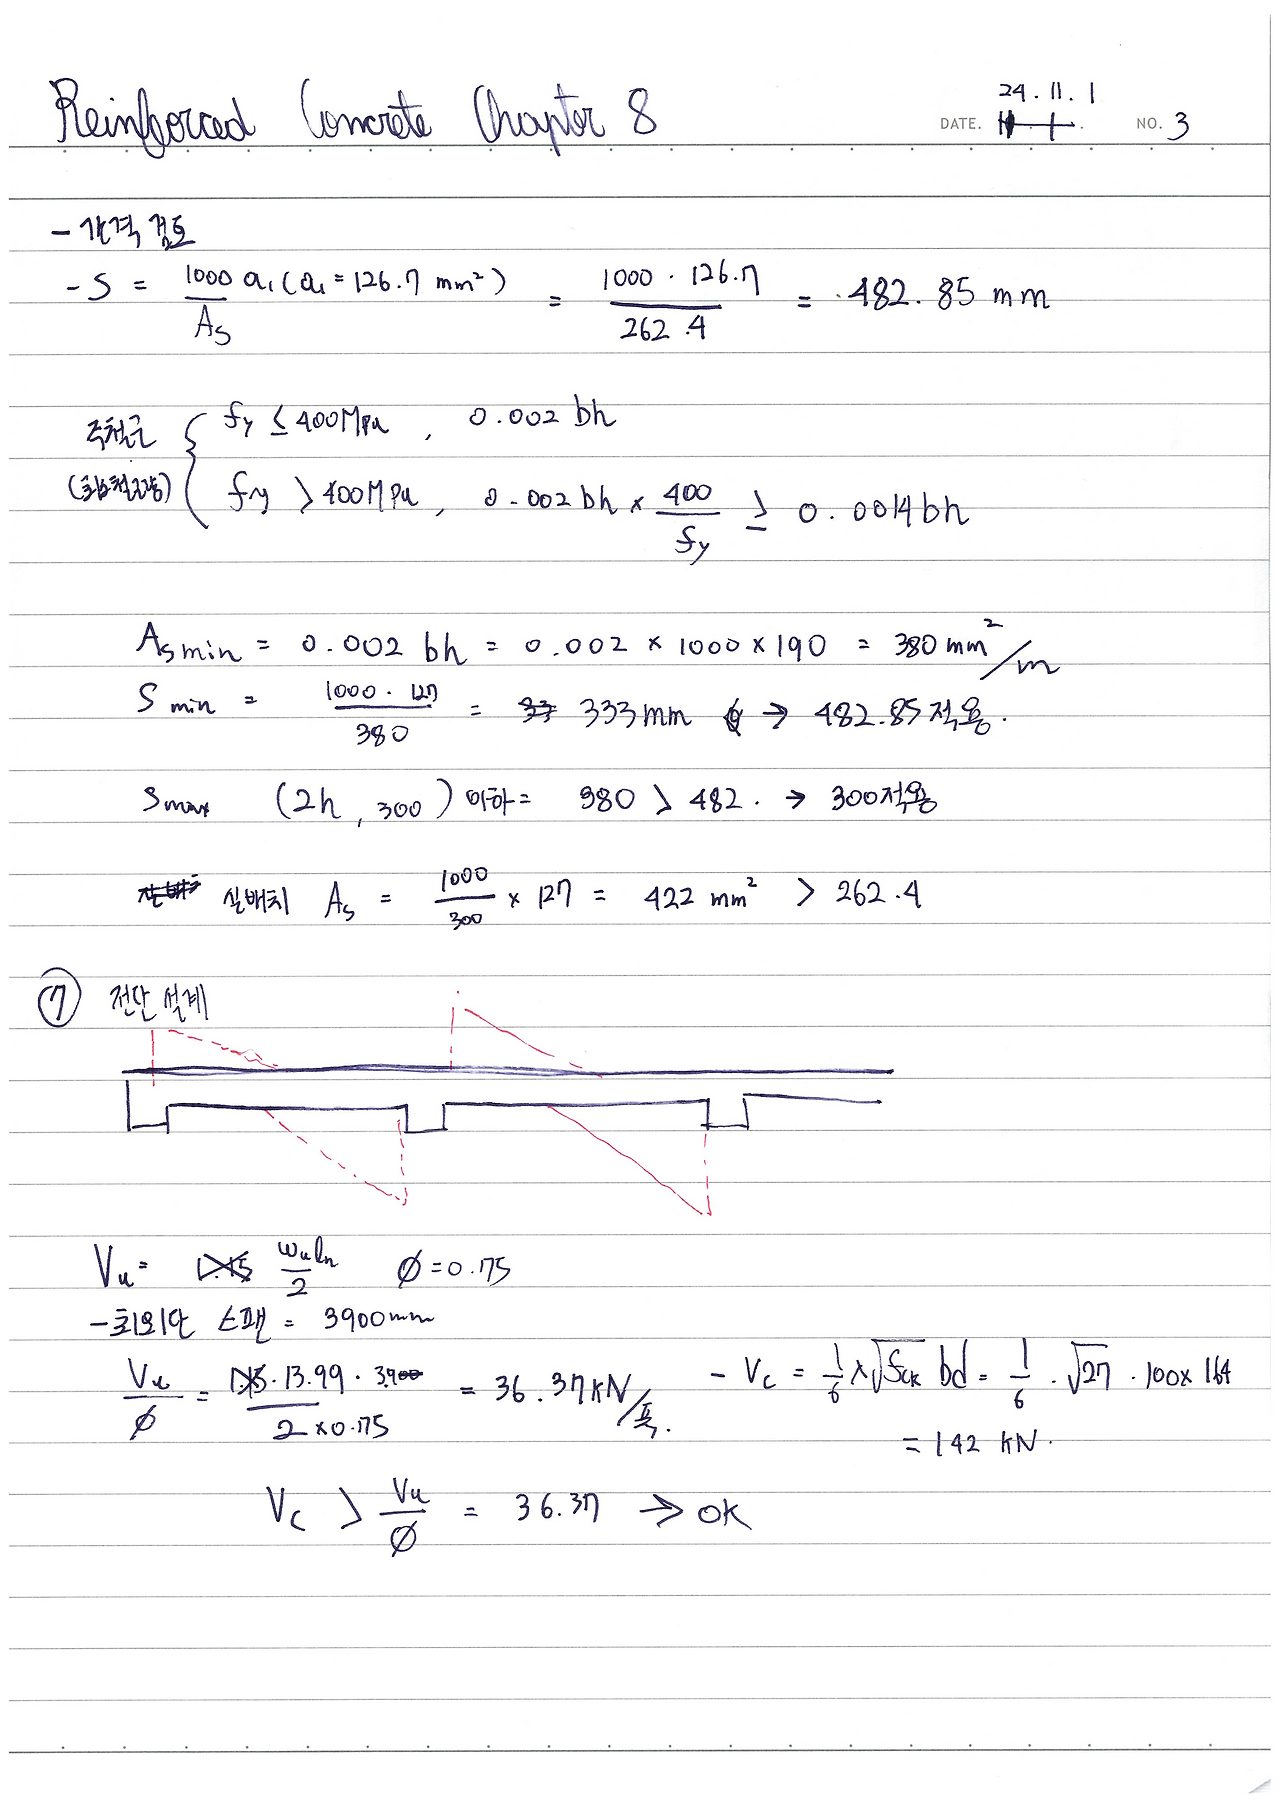 Reinforced Concrete Chapter 8
24. 11. 1
DATE. NO. 3
- 간격 검토
- S = 1000 a₁ (a₁ = 126.7 mm²) / As = 1000 · 126.7 / 262.4 = 482.85 mm
주철근 fy ≤ 400MPa, 0.002 bh
fy > 400MPa, 0.002 bh × 400/fy ≥ 0.0014 bh
As min = 0.002 bh = 0.002 × 1000 × 190 = 380 mm²/m
S min = 1000 · 127 / 380 = 333mm → 482.85 적용.
Smax (2h, 300) 이하 = 380 > 482. → 300 적용
실배치 As = 1000/300 × 127 = 422 mm² > 262.4
⑦ 전단 설계
Vu = wu ln / 2 ∅ = 0.75
- 최외단 스팬 = 3900mm
Vu/∅ = 1.15 · 13.99 · 3.900 / 2 × 0.75 = 36.37 kN/폭.
- Vc = 1/6 λ √fck bd = 1/6 · √27 · 100 × 164
= 142 kN.
Vc > Vu/∅ = 36.37 → OK